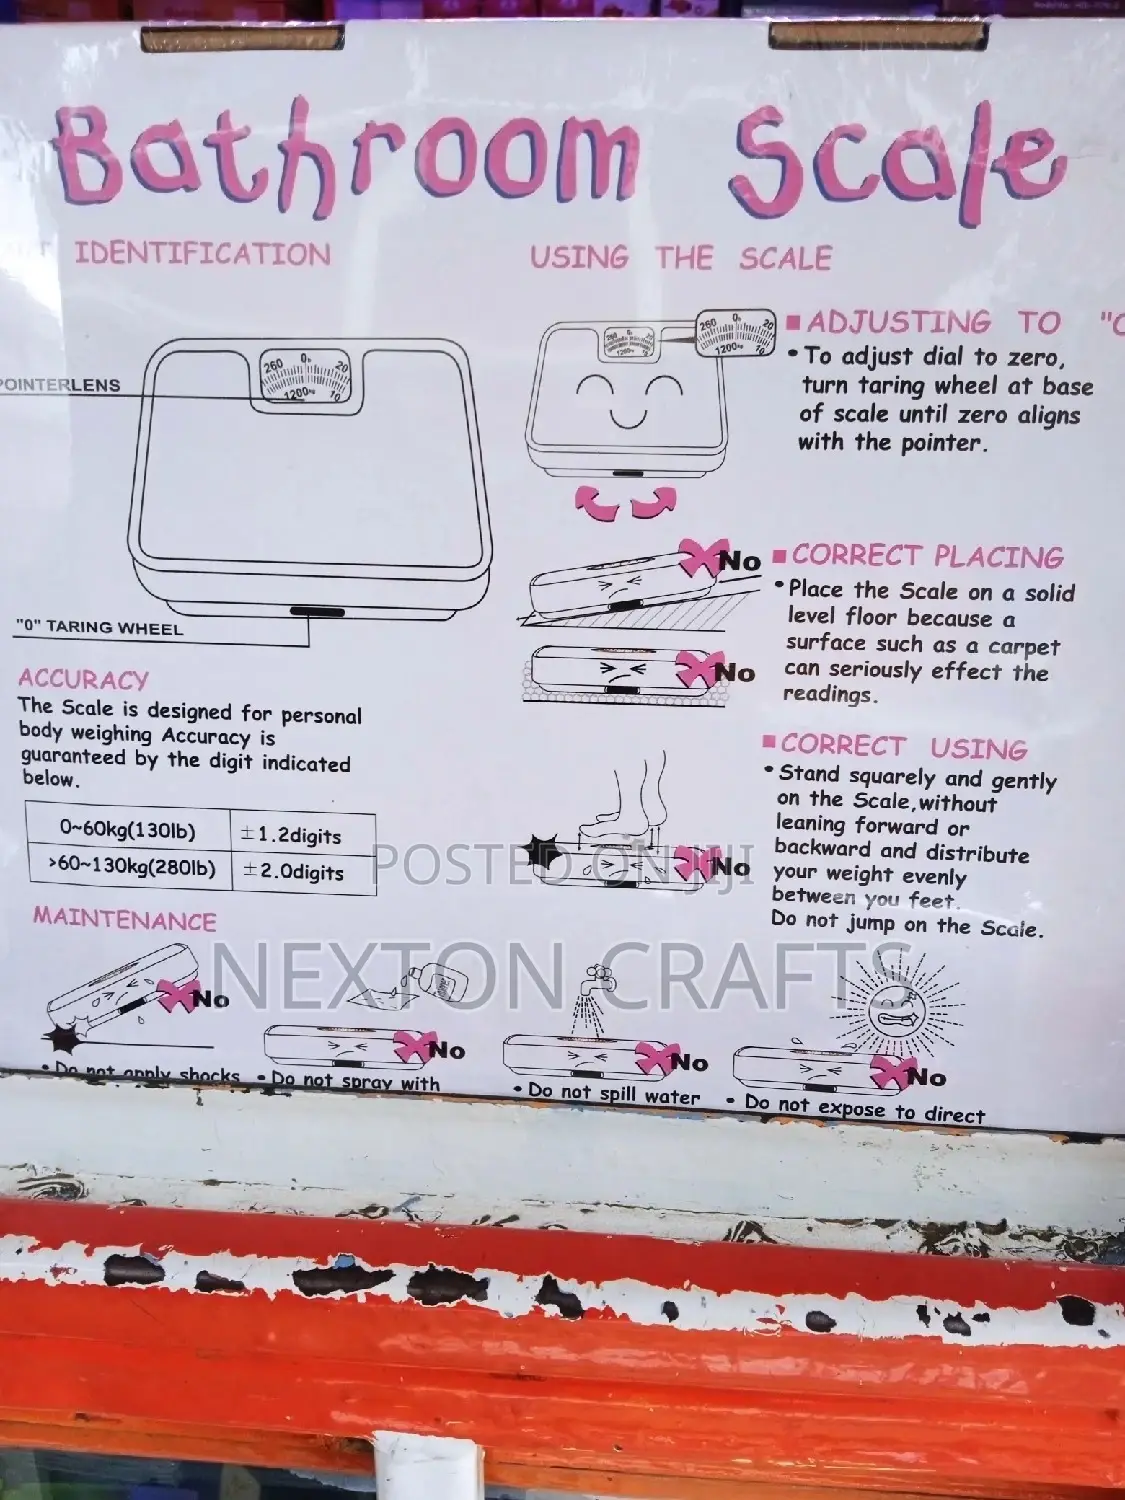 Bathroom Scale
IDENTIFICATION
POINTERLENS
260 0 20
1200 10
"0" TARING WHEEL
ACCURACY
The Scale is designed for personal
body weighing Accuracy is
guaranteed by the digit indicated
below.
0~60kg(130lb) ±1.2digits
>60~130kg(280lb) ±2.0digits
MAINTENANCE
No
• Do not apply shocks
No
• Do not spray with
No
• Do not spill water
No
• Do not expose to direct
USING THE SCALE
260 0 20
1200 10
260 0 20
1200 10
■ ADJUSTING TO "0
• To adjust dial to zero,
turn taring wheel at base
of scale until zero aligns
with the pointer.
No
No
■ CORRECT PLACING
• Place the Scale on a solid
level floor because a
surface such as a carpet
can seriously effect the
readings.
No
■ CORRECT USING
• Stand squarely and gently
on the Scale,without
leaning forward or
backward and distribute
your weight evenly
between you feet.
Do not jump on the Scale.
POSTED ON JIJI
NEXTON CRAFTS